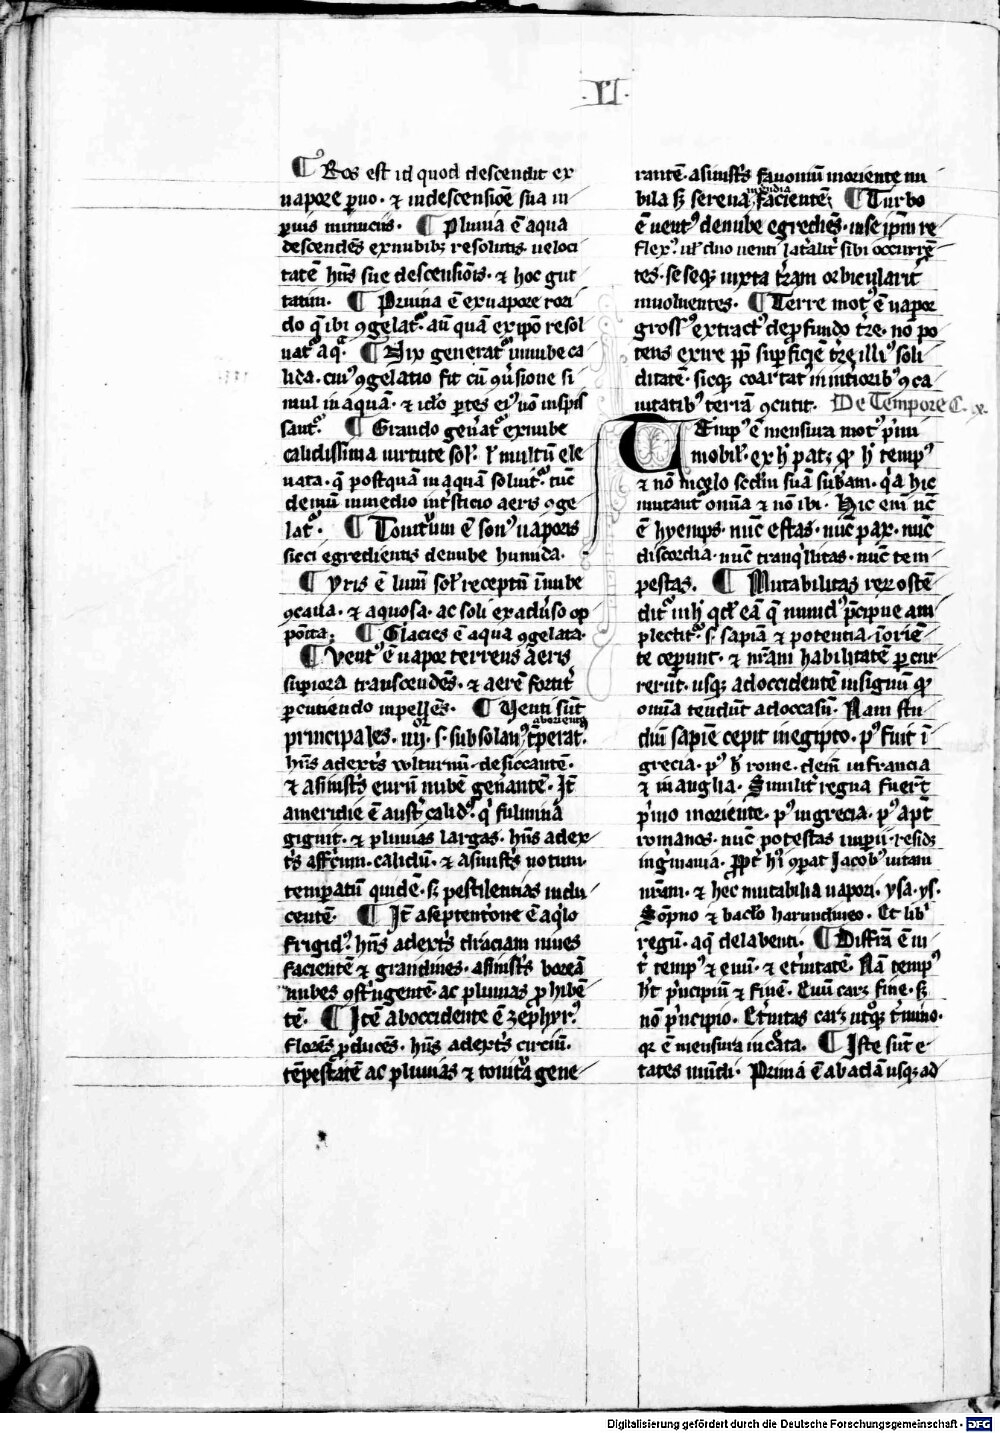 .II.
¶ Ros est id quod descendit ex
uapore paruo · ⁊ in descensione sua in
paruis minuciis · ¶ Pluuia ē aqua
descendēs ex nubibꝫ resolutis ueloci
tatē hn̄s sue descensiōis · ⁊ hoc gut
tatim · ¶ Pruina ē ex uapore rori
do q̄ ibi ꝯgelat᷑
¶ Nix generat᷑ in nube ca
lida · cuiꝰ ꝯgelatio fit cū ꝯu̾sione si
mul in aquā · ⁊ ido ꝑtes eiꝰ nō inspis
sant᷑ · ¶ Grando gen̾at᷑ ex nube
calidissima uirtute sol̾ · l̾ multū ele
uata · q̄ postquā in aquā soluit᷑ · tūc
demū in medio int̾sticio aeris ꝯge
lat᷑ · ¶ Tonitruum ē sonꝰ uaporis
sicci egredientis de nube humida ·
¶ Yris ē lum̄ sol̾ receptū ī nube
ꝯcaua · ⁊ aquosa · ac soli ex adu̾so op
po̾ita · ¶ Glacies ē aqua ꝯgelata ·
¶ Uentꝰ ē uapor terreus āeris
supiora transcendēs · ⁊ aerē fortit̾
ꝑcutiendo inpellēs · ¶ Uenti sūt
principales · iiij · s · subsolanꝰ tēperat᷑ ·
ab oriente
hn̄s a dext̾s wlturnū · desiccantē ·
⁊ a sinist̾s eurū nubē gen̾antē · Itē
a meridie ē aust̾ calidꝰ · q̾ fulmina
gignit · ⁊ pluuias largas · hn̄s a dex
t̾s affricum · calidū · ⁊ a sinist̾s notum ·
temperatū quidē · sꝫ pestilentias indu
centē · ¶ Itē a septent̾one ē aq̾lo
frigidꝰ · hn̄s a dext̾s circiam niues
facientē ⁊ grandines · a sinist̾s boreā
nubes ꝯst̾ngentē ac pluuias ꝓhibē
tē · ¶ Itē ab occidente ē zephyrꝰ
florēs ꝓducēs · hn̄s a dext̾s circiū ·
tēpestatē ac pluuias ⁊ tonitrua gene
rantē · a sinist̾s fauoniū in oriente nu
bila sꝫ serena facientē · ¶ Turbo
in india
ē uentꝰ de nube egrediēs · in se ip̄m re
flexꝰ · ul̾ duo uenti lat̾alit̾ sibi occurrē
tes · se seqꝫ iuxta t̾ram orbicularit̾
inuoluentes · ¶ Terre motꝰ ē uapor
grossꝰ extractꝰ de ꝓfundo t̾re · nō po
tens exire ꝓp̄ suꝑficiē t̾re illiꝰ soli
ditatē · sicqꝫ coartatꝰ in int̾ioribꝰ ꝯca
uitatibꝰ terrā ꝯcutit · De Tempore C. ix.
Tempꝰ ē mensura motꝰ p̾mi
mobil̾ · ex h̾ patꝫ qd̾ h̾ tempꝰ
⁊ nō in celo sedm̄ suā sub̄am · q̾a hic
mutant᷑ omīa ⁊ nō ibi · Hic eni nūc
ē hyemps · nūc estas · nūc pax · nūc
discordia · nūc tranq̾llitas · nūc tem
pestas · ¶ Mutabilitas reꝝ ostē
dit᷑ in h̾ qd̾ ea q̄ mundꝰ p̾cipue am
plectit᷑ · s · sapīa ⁊ potentia · ī oriē
te ceperunt · ⁊ nr̄am habilitatē ꝑcur
rerūt · usqꝫ ad occidentē in signū qd̾
omīa tendūt ad occasū · Nam stu
diū sapīe cepit in egipto · pꝰ fuit ī
grecia · pꝰ h̾ rome · dem̄ in francia
⁊ in anglia · Similit̾ regna fuerūt
p̾mo in oriente · pꝰ in grecia · pꝰ apd̾
romanos · nūc potestas imp̾ii · residꝫ
in germania · Ꝓpt̾ h̾ ꝯparat Jacobꝰ uitam
nr̄am · ⁊ hec mutabilia uapori · ysa · ys ·
Sōpno ⁊ baclo harundineo · Et lib̾
regū · aq̄ delabenti · ¶ Diffr̄a ē in
t̾ tempꝰ ⁊ euū · ⁊ et̾nitatē · Nā tempꝰ
h̾t p̾ncipiū ⁊ finē · Euū carꝫ fine · sꝫ
nō p̾ncipio · Et̾nitas carꝫ ut̾qꝫ t̾mino ·
qꝛ ē mensura inc̾ata · ¶ Iste sūt e
tates mūdi · Prima ē ab adā usqꝫ ad
Digitalisierung gefördert durch die Deutsche Forschungsgemeinschaft - DFG